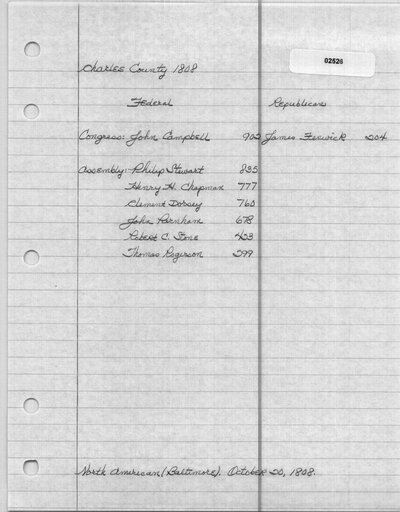 02526
Charles County 1808
Federal Republicans
Congress: John Campbell 902 James Fenwick 204
Assembly: Philip Stewart 835
Henry H. Chapman 777
Clement Dorsey 760
John Parnham 678
Robert C. Stone 423
Thomas Rogerson 399
North American (Baltimore). October 20, 1808.